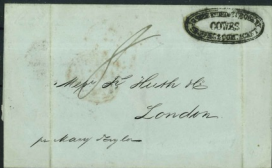 COWES
8
Messrs Fr Huth & Co
London
per Mary Taylor